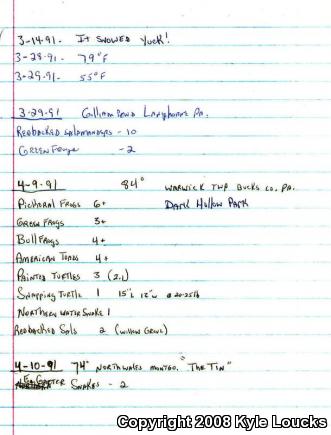 3-14-91- It snowed Yuck!
3-28-91- 79°F
3-29-91- 55°F
3-29-91 Langhorne Pa.
Redbacked Salamanders - 10
Green Frogs - 2
4-9-91 84° Warwick Twp Bucks Co, Pa.
Pickeral Frogs 6+ Dark Hollow Park
Green Frogs 3+
Bull Frogs 4+
American Toads 4+
Painted Turtles 3 (2.1)
Snapping Turtle 1 15"L 12"W @ 20-25lb
Northern Water Snake 1
Redbacked Sals 2 (Willow Grove)
4-10-91 74° North Wales Montgo. "The Tin"
Garter Snakes - 2
Copyright 2008 Kyle Loucks